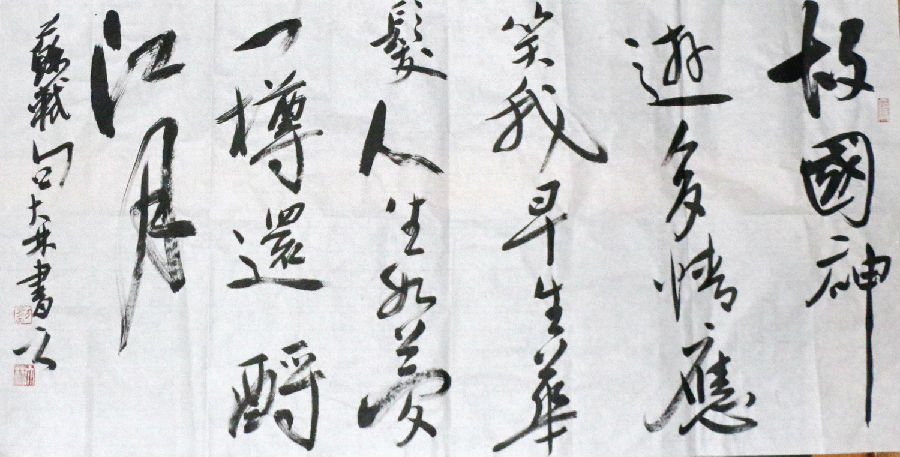 故國神
遊多情應
笑我早生華
髮人生如夢
一樽還酹
江月
蘇軾句大林書